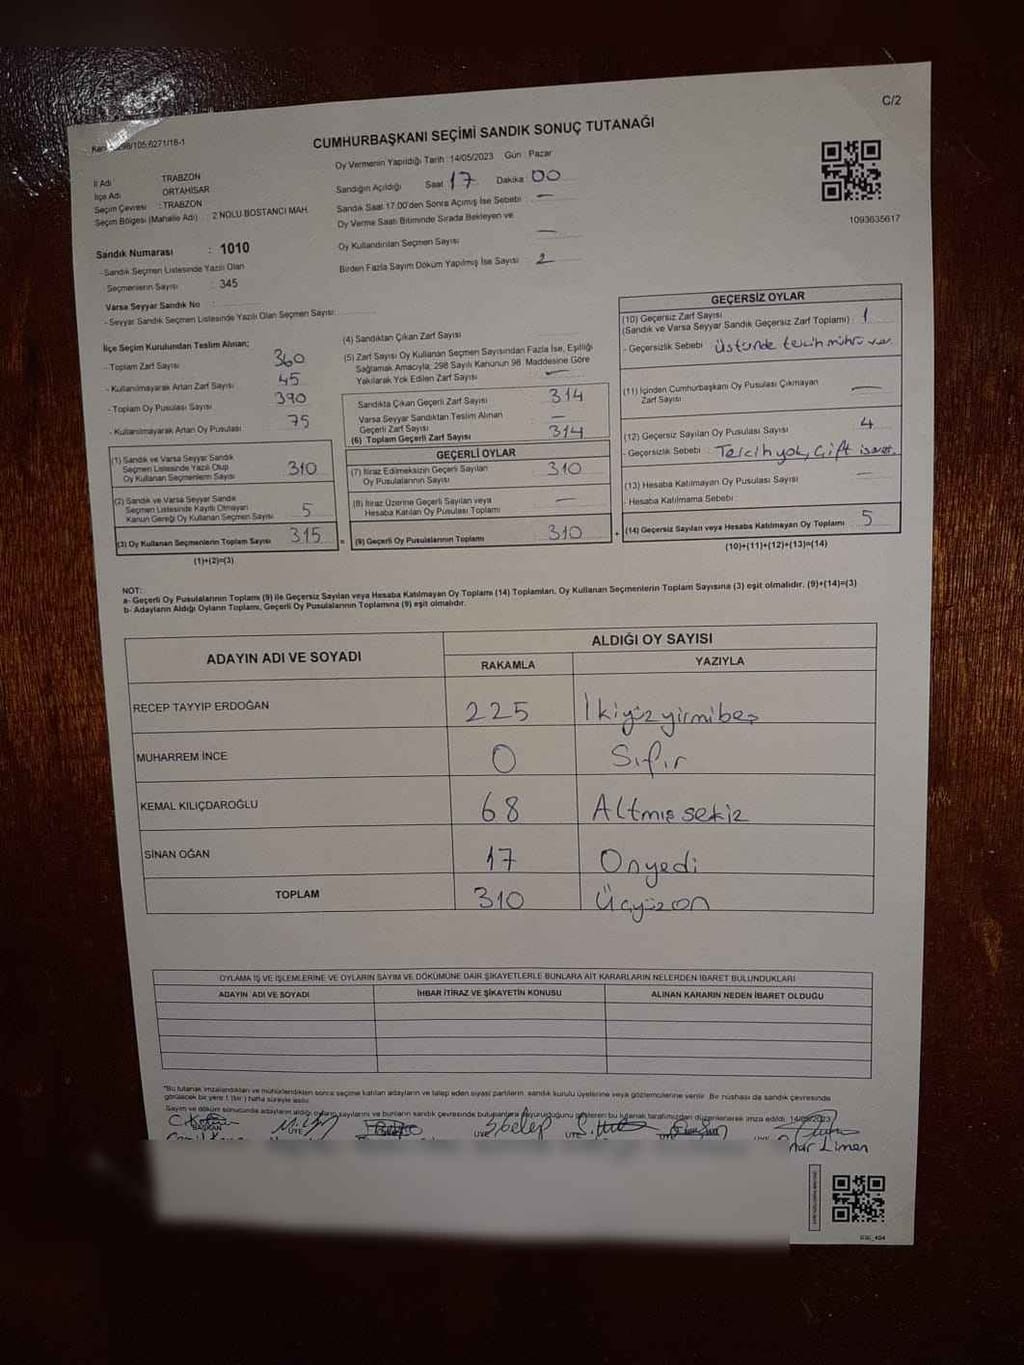 C/2
CUMHURBAŞKANI SEÇİMİ SANDIK SONUÇ TUTANAĞI
Oy Vermenin Yapıldığı Tarih : 14/05/2023 Gün : Pazar
İl Adı : TRABZON
İlçe Adı : ORTAHİSAR
Seçim Çevresi : TRABZON
Seçim Bölgesi (Mahalle Adı) : 2 NOLU BOSTANCI MAH.
Sandık Numarası : 1010
- Sandık Seçmen Listesinde Yazılı Olan
Seçmenlerin Sayısı : 345
Varsa Seyyar Sandık No :
- Seyyar Sandık Seçmen Listesinde Yazılı Olan Seçmen Sayısı:
Sandığın Açıldığı Saat : 17 Dakika : 00
Sandık Saat 17.00'den Sonra Açılmış İse Sebebi : —
Oy Verme Saati Bitiminde Sırada Bekleyen ve
Oy Kullandırılan Seçmen Sayısı : —
Birden Fazla Sayım Döküm Yapılmış İse Sayısı : 2
1093635617
İlçe Seçim Kurulundan Teslim Alınan;
- Toplam Zarf Sayısı : 360
- Kullanılmayarak Artan Zarf Sayısı : 45
- Toplam Oy Pusulası Sayısı : 390
- Kullanılmayarak Artan Oy Pusulası : 75
(1) Sandık ve Varsa Seyyar Sandık
Seçmen Listesinde Yazılı Olup
Oy Kullanan Seçmenlerin Sayısı : 310
(2) Sandık ve Varsa Seyyar Sandık
Seçmen Listesinde Kayıtlı Olmayan
Kanun Gereği Oy Kullanan Seçmen Sayısı : 5
(3) Oy Kullanan Seçmenlerin Toplam Sayısı : 315
(1)+(2)=(3)
(4) Sandıktan Çıkan Zarf Sayısı :
(5) Zarf Sayısı Oy Kullanan Seçmen Sayısından Fazla İse, Eşitliği
Sağlamak Amacıyla, 298 Sayılı Kanunun 98. Maddesine Göre
Yakılarak Yok Edilen Zarf Sayısı : —
Sandıkta Çıkan Geçerli Zarf Sayısı : 314
Varsa Seyyar Sandıktan Teslim Alınan
Geçerli Zarf Sayısı : —
(6) Toplam Geçerli Zarf Sayısı : 314
GEÇERLİ OYLAR
(7) İtiraz Edilmeksizin Geçerli Sayılan
Oy Pusulalarının Sayısı : 310
(8) İtiraz Üzerine Geçerli Sayılan veya
Hesaba Katılan Oy Pusulası Toplamı : —
= (9) Geçerli Oy Pusulalarının Toplamı : 310
GEÇERSİZ OYLAR
(10) Geçersiz Zarf Sayısı
(Sandık ve Varsa Seyyar Sandık Geçersiz Zarf Toplamı) : 1
- Geçersizlik Sebebi : Üstünde tercih mührü var.
(11) İçinden Cumhurbaşkanı Oy Pusulası Çıkmayan
Zarf Sayısı : —
(12) Geçersiz Sayılan Oy Pusulası Sayısı : 4
- Geçersizlik Sebebi : Tercih yok, Çift işaret.
(13) Hesaba Katılmayan Oy Pusulası Sayısı : —
- Hesaba Katılmama Sebebi :
+ (14) Geçersiz Sayılan veya Hesaba Katılmayan Oy Toplamı : 5
(10)+(11)+(12)+(13)=(14)
NOT:
a- Geçerli Oy Pusulalarının Toplamı (9) ile Geçersiz Sayılan veya Hesaba Katılmayan Oy Toplamı (14) Toplamları, Oy Kullanan Seçmenlerin Toplam Sayısına (3) eşit olmalıdır. (9)+(14)=(3)
b- Adayların Aldığı Oyların Toplamı, Geçerli Oy Pusulalarının Toplamına (9) eşit olmalıdır.
ADAYIN ADI VE SOYADI
ALDIĞI OY SAYISI
RAKAMLA YAZIYLA
RECEP TAYYIP ERDOĞAN 225 İkiyüzyirmibeş
MUHARREM İNCE 0 Sıfır
KEMAL KILIÇDAROĞLU 68 Altmışsekiz
SİNAN OĞAN 17 Onyedi
TOPLAM 310 Üçyüzon
OYLAMA İŞ VE İŞLEMLERİNE VE OYLARIN SAYIM VE DÖKÜMÜNE DAİR ŞİKAYETLERLE BUNLARA AİT KARARLARIN NELERDEN İBARET BULUNDUKLARI
ADAYIN ADI VE SOYADI İHBAR İTİRAZ VE ŞİKAYETİN KONUSU ALINAN KARARIN NEDEN İBARET OLDUĞU
"Bu tutanak imzalandıktan ve mühürlendikten sonra seçime katılan adayların ve talep eden siyasi partilerin sandık kurulu üyelerine veya gözlemcilerine verilir. Bir nüshası da sandık çevresinde
görülecek bir yere 1 (bir) hafta süreyle asılır.
Sayım ve döküm sonucunda adayların aldığı oyların sayılarını ve bunların sandık çevresinde bulunanlara duyurulduğunu gösteren bu tutanak tarafımızdan düzenlenerek imza edildi. 14/05/2023
BAŞKAN
Limen